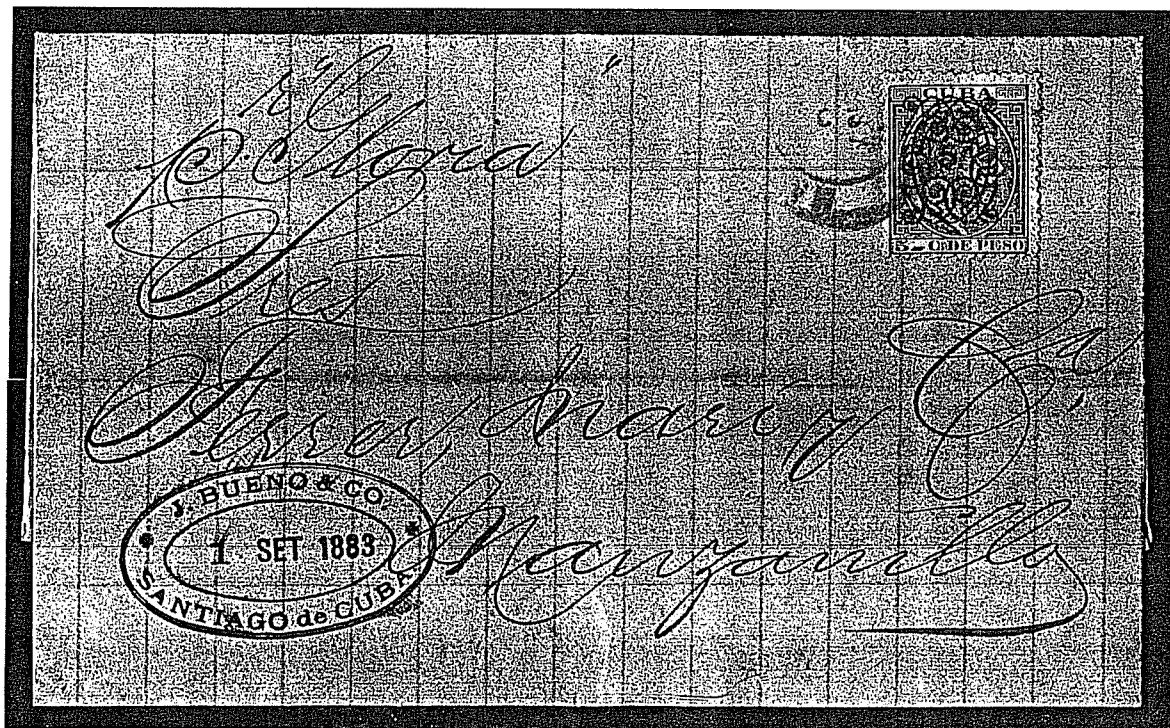 p. Gloria
Sres
Ferrer, March y Ca.
Manzanillo
CUBA
5 C. DE PESO
J. BUENO & CO.
1 SET 1883
SANTIAGO de CUBA